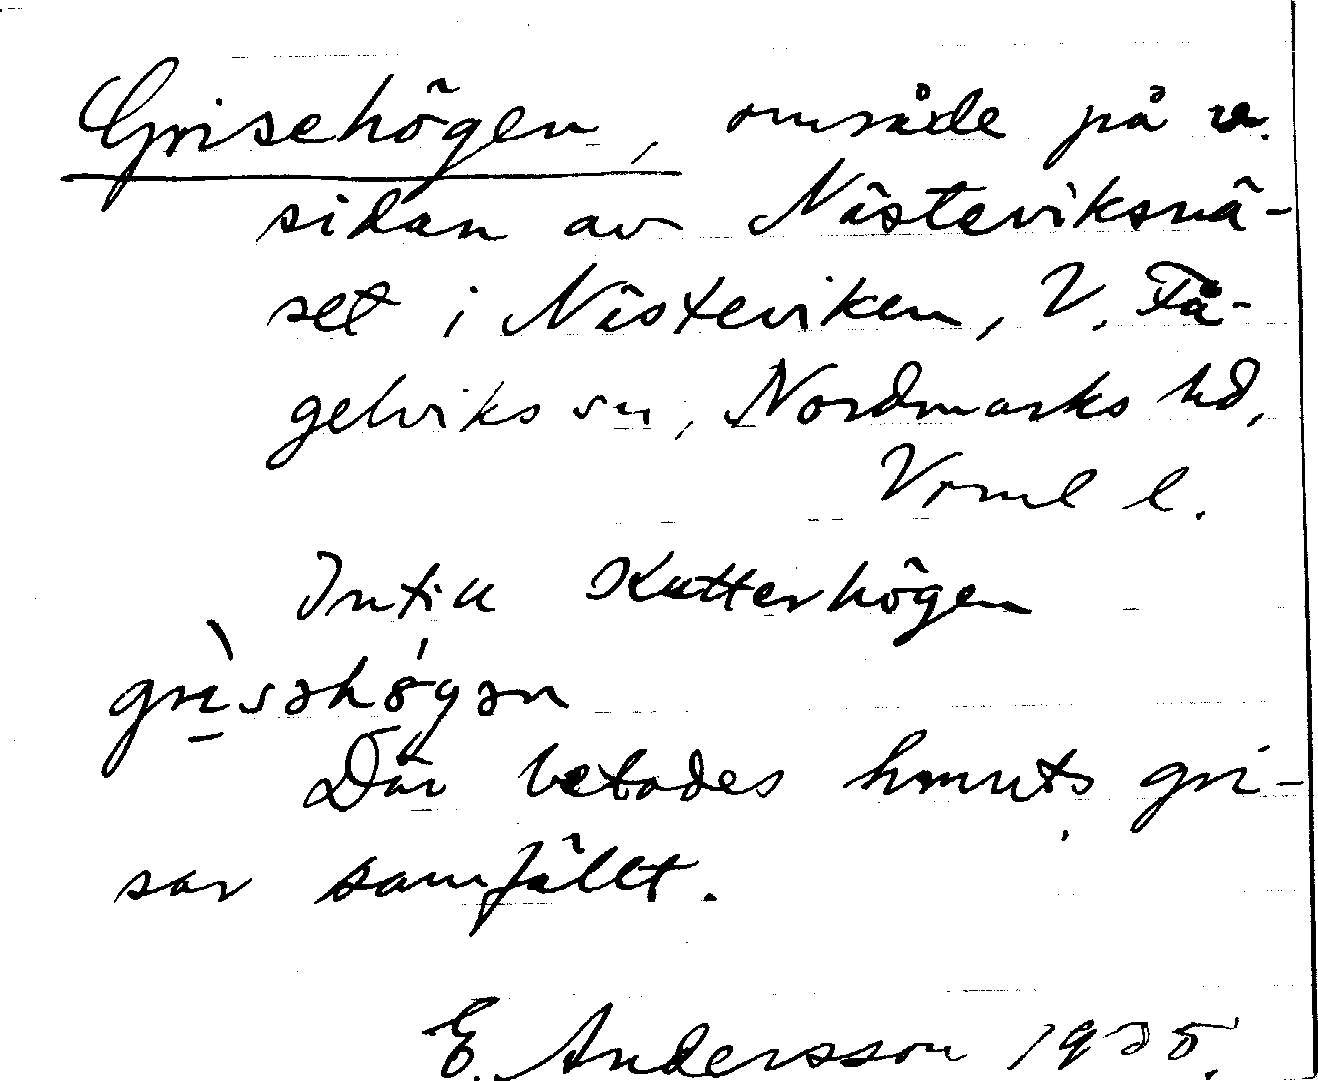 Grisehögen, område på v.
sidan av Nästeviksnä-
set i Nästeviken, V. Få-
gelviks sn, Nordmarks hd,
Vrml l.
Intill Kutterhögen
grìsəhö́gən
Där betades hmnets gri-
sar samfällt.
E. Andersson 1935.